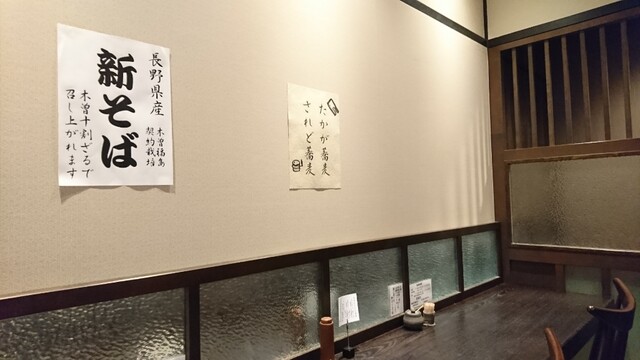 長野県産
木曽福島
契約栽培
新そば
木曽十割ざるで
召し上がれます
たかが蕎麦
されど蕎麦